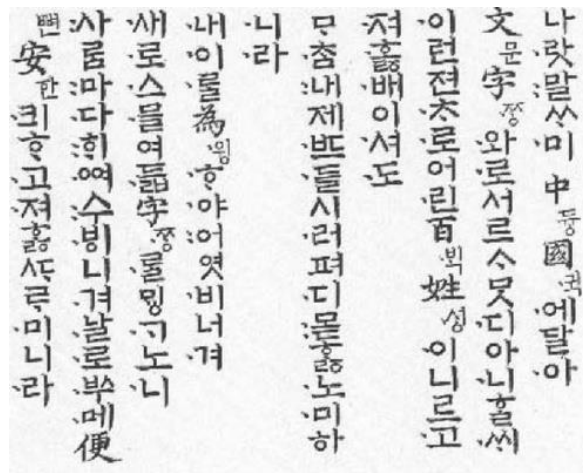 나·랏:말ᄊᆞ미 中듕國귁·에달·아
文문字ᄍᆞᆼ·와·로서르ᄉᆞᄆᆞᆺ·디아·니ᄒᆞᆯ·ᄊᆡ
·이런젼ᄎᆞ·로어·린百·ᄇᆡᆨ姓·성·이니르·고
·져ᄒᆞᇙ·배이·셔·도
ᄆᆞ·ᄎᆞᆷ:내제·ᄠᅳ·들시·러펴·디:몯ᄒᆞᇙ·노·미하
·니·라
·내·이·ᄅᆞᆯ為·윙·ᄒᆞ·야:어엿·비너·겨
·새·로·스·믈여·듧字·ᄍᆞᆼ·ᄅᆞᆯᄆᆡᇰ·ᄀᆞ노·니
:사ᄅᆞᆷ:마·다:ᄒᆡ·ᅇᅧ:수·ᄫᅵ니·겨·날·로·ᄡᅮ·메便
뼌安한·킈ᄒᆞ·고·져ᄒᆞᇙᄯᆞᄅᆞ·미니·라